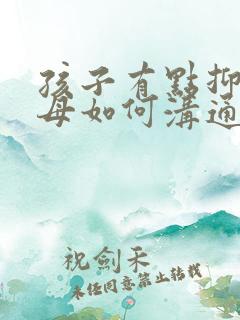 孩子有點抑
母如何溝通
祝劍禾
未經同意禁止轉載